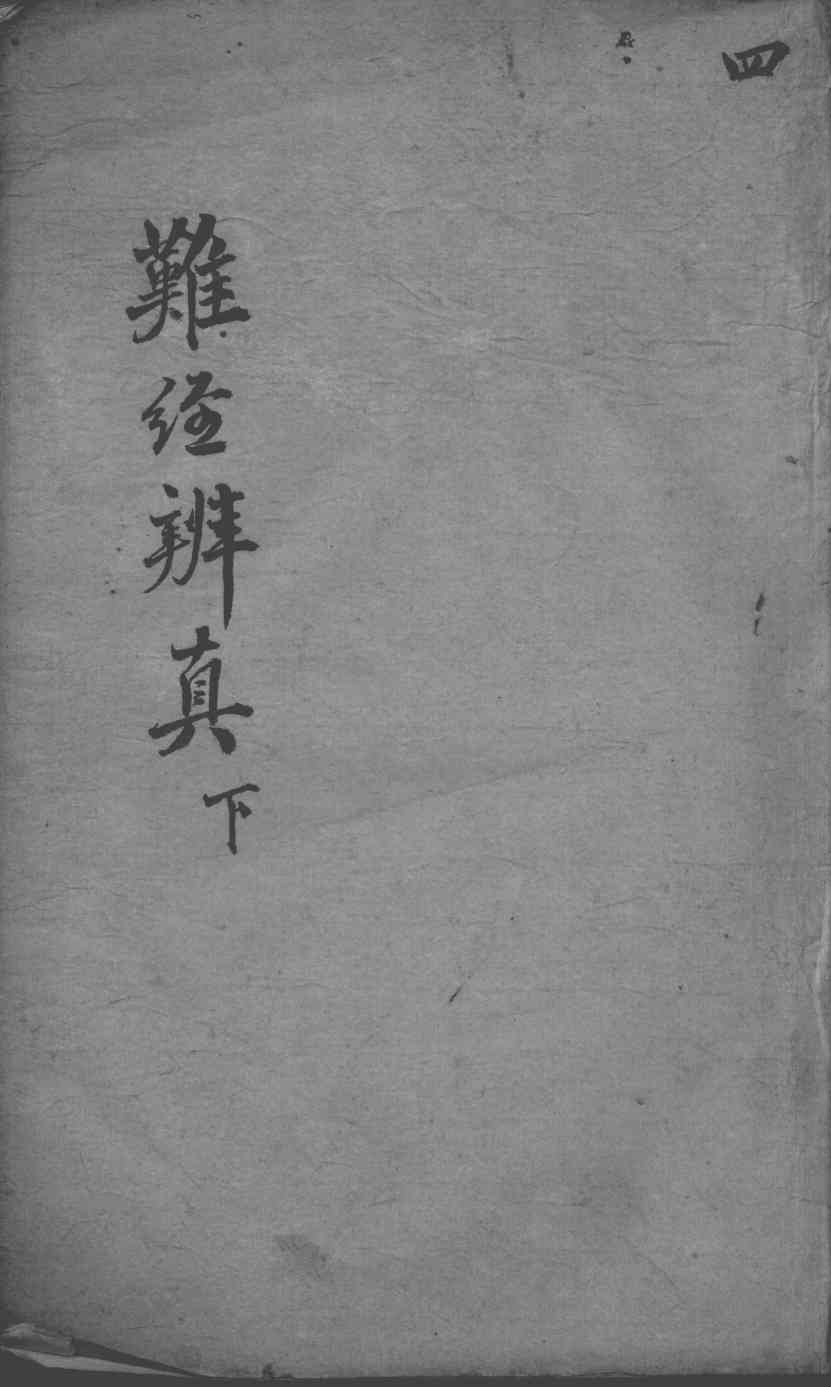 四
難経辨真
下